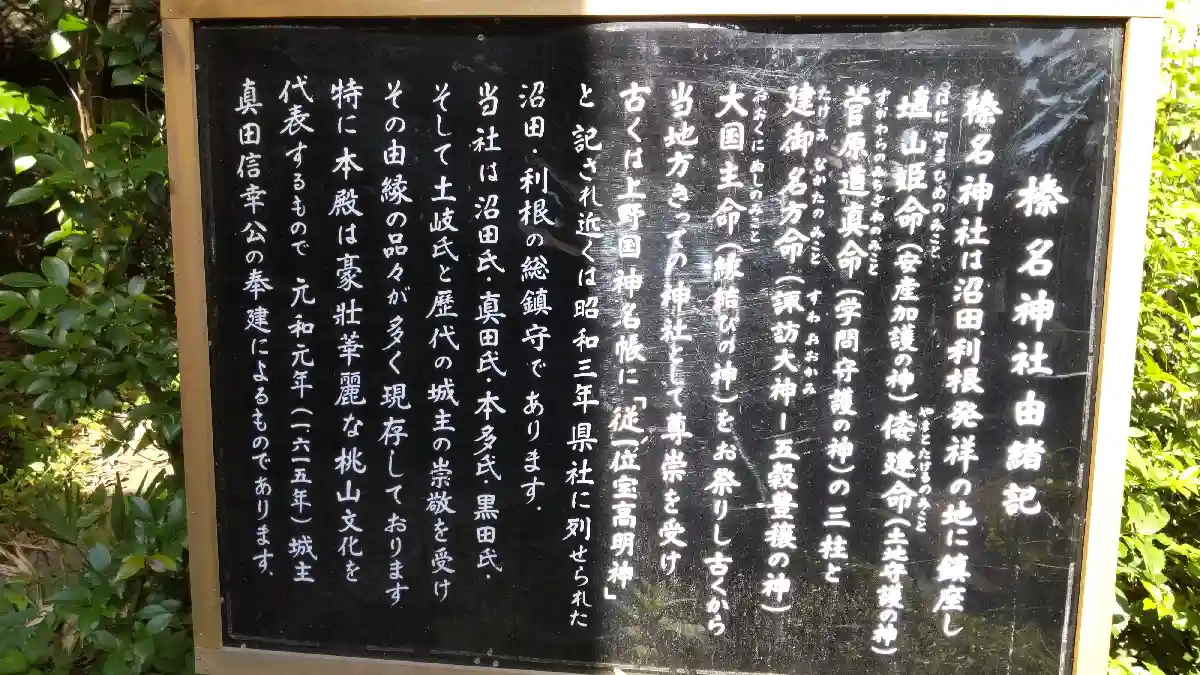 榛名神社由緒記
榛名神社は沼田、利根発祥の地に鎮座し
はにやまひめのみこと
埴山姫命（安産加護の神）倭建命（土地守護の神）
やまとたけるのみこと
すがわらのみちざねのみこと
菅原道真命（学問守護の神）の三柱と
たけみなかたのみこと すわおおかみ
建御名方命（諏訪大神ー五穀豊穣の神）
おおくにぬしのみこと
大国主命（縁結びの神）をお祭りし古くから
当地方きっての神社として尊崇を受け
古くは上野国神名帳に「従一位宝高明神」
と記され近くは昭和三年県社に列せられた
沼田・利根の総鎮守であります．
当社は沼田氏・真田氏・本多氏・黒田氏・
そして土岐氏と歴代の城主の崇敬を受け
その由縁の品々が多く現存しております
特に本殿は豪壮華麗な桃山文化を
代表するもので 元和元年（一六一五年）城主
真田信幸公の奉建によるものであります．